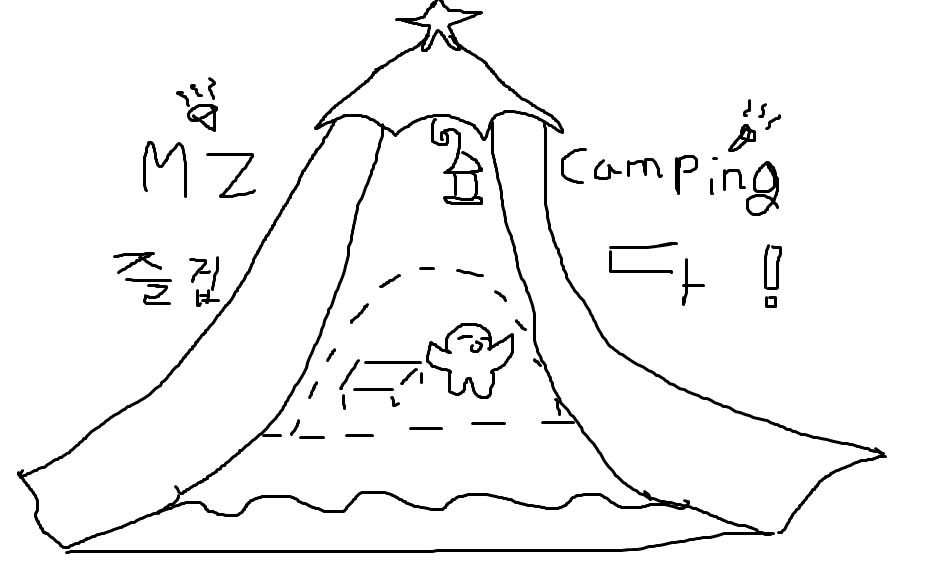 MZ Camping
즐집다!